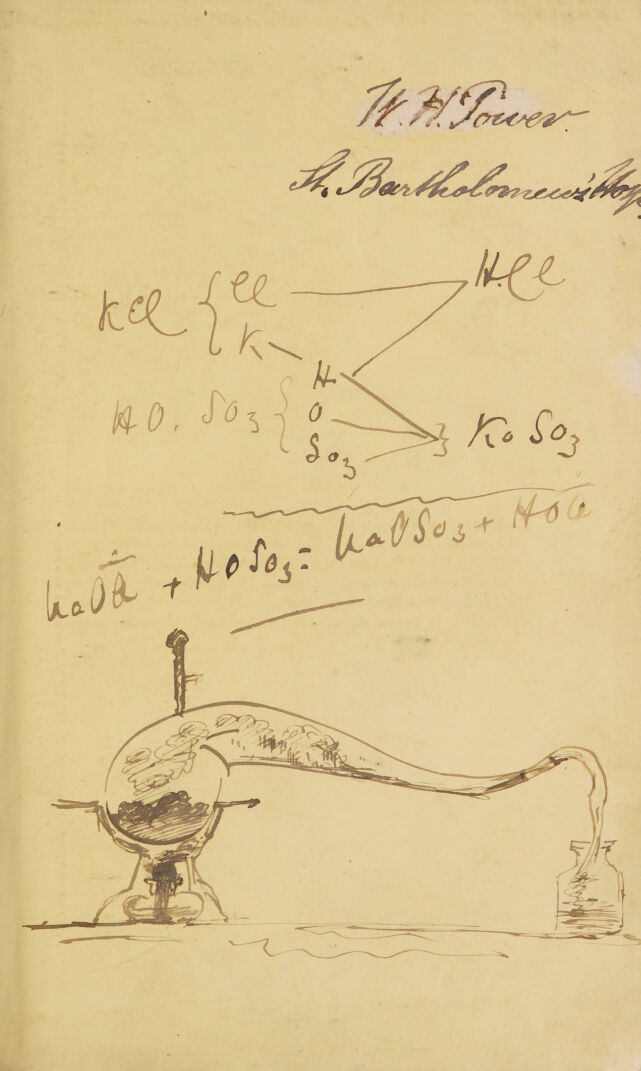 W. H. Power.
St. Bartholomew's Hosp
KCl { Cl H.Cl
K
HO. SO3 { H
O } KO SO3
SO3
NaO + HO SO3 = NaO SO3 + HO